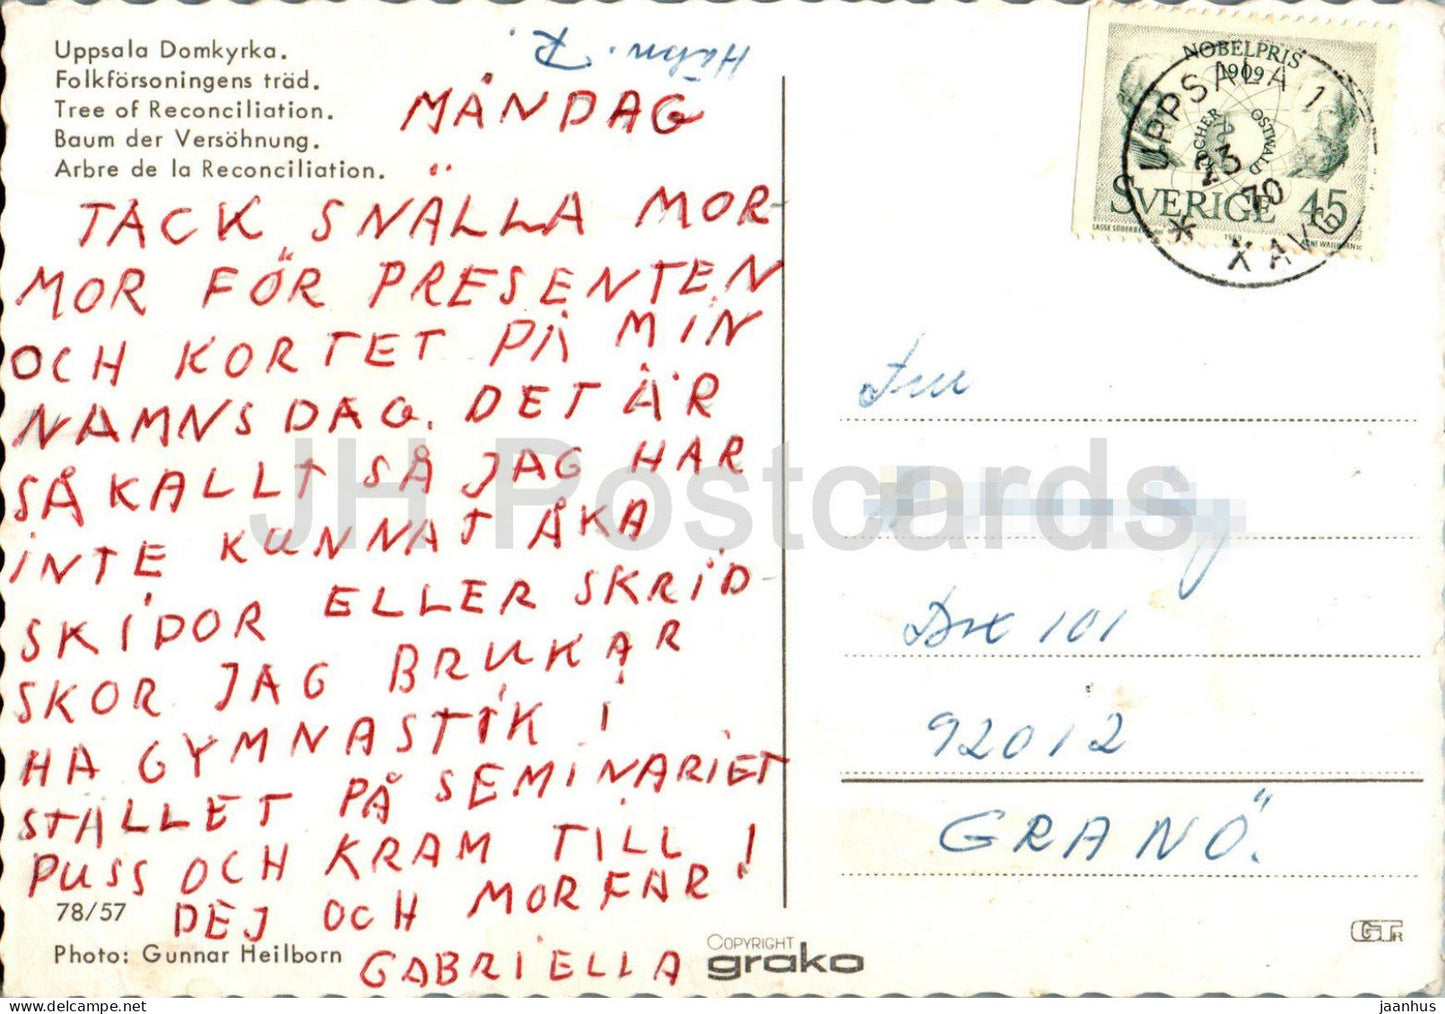 Uppsala Domkyrka.
Folkförsoningens träd.
Tree of Reconciliation.
Baum der Versöhnung.
Arbre de la Reconciliation.
MÅNDAG
TACK SNÄLLA MOR-
MOR FÖR PRESENTEN
OCH KORTET PÅ MIN
NAMNSDAG. DET ÄR
SÅ KALLT SÅ JAG HAR
INTE KUNNAT ÅKA
SKIDOR ELLER SKRID-
SKOR JAG BRUKAR
HA GYMNASTIK I
STÄLLET PÅ SEMINARIET
PUSS OCH KRAM TILL
DEJ OCH MORFAR!
GABRIELLA
78/57
Photo: Gunnar Heilborn
COPYRIGHT
grako
NOBELPRIS
1909
KOCHER OSTWALD
SVERIGE 45
LASSE SÖDERBERG 1969 ARNE WALLHORN SC
UPPSALA 1
23
70
* XAVG
Box 101
92012
GRANÖ.
GTR
JH Postcards
https://www.delcampe.net
jaanhus